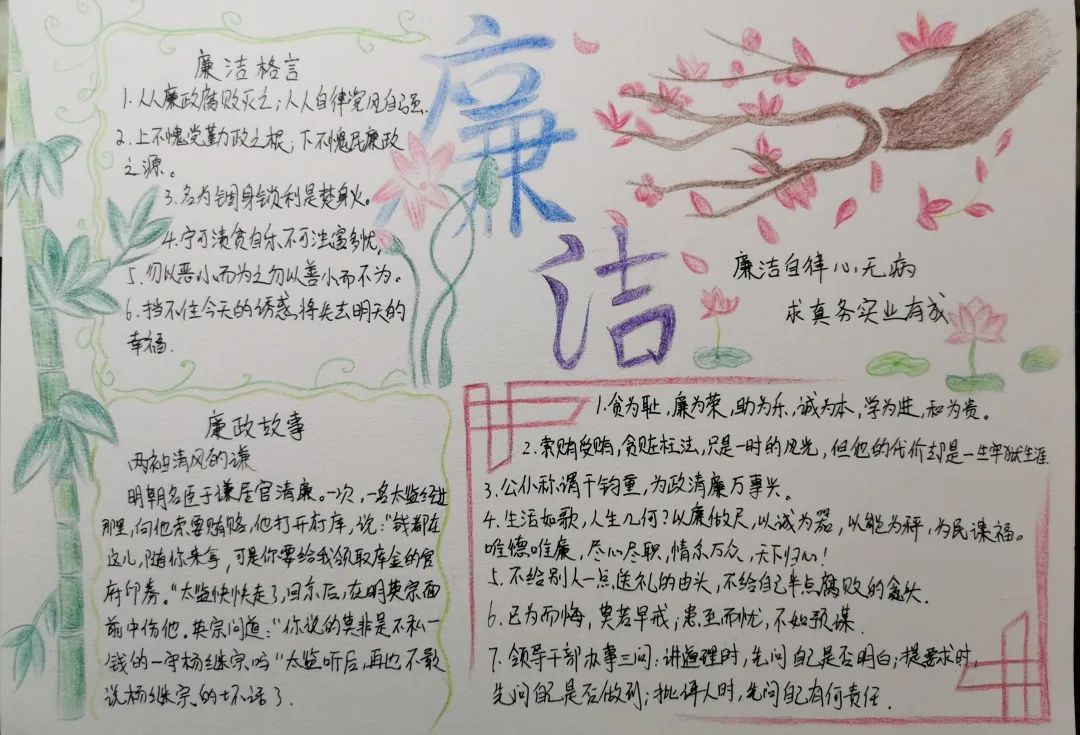 廉洁
廉洁格言
1.人人廉政腐败灭之;人人自律党风自强.
2.上不愧党勤政之根;下不愧民廉政
之源。
3.名为锢身锁利是焚身火。
4.宁可清贫自乐,不可浊富多忧
5.勿以恶小而为之勿以善小而不为。
6.挡不住今天的诱惑,将失去明天的
幸福.
廉洁自律心无病
求真务实业有成
廉政故事
两袖清风的谦
明朝名臣于谦居官清廉。一次,一名太监经过
那里,向他索要贿赂,他打开府库,说:“钱都在
这儿,随你来拿,可是你要给我领取库金的官
府印券。”太监怏怏走了,回京后,在明英宗面
前中伤他。英宗问道:“你说的莫非是不私一
钱的一守杨继宗吗”太监听后,再也不敢
说杨继宗的坏话了.
1.贪为耻,廉为荣,助为乐,诚为本,学为进,和为贵。
2.索贿受贿,贪赃枉法,只是一时的风光,但他的代价却是一生牢狱生涯.
3.公仆称谓千钧重,为政清廉万事兴。
4.生活如歌,人生几何?以廉做尺,以诚为器,以能为秤,为民谋福。
唯德唯廉,尽心尽职,情系万众,天下归心!
5.不给别人一点送礼的由头,不给自己半点腐败的念头.
6.已为而悔,莫若早戒;患至而忧,不如预谋.
7.领导干部办事三问:讲道理时,先问自己是否明白;提要求时,
先问自己是否做到;批评人时,先问自己有何责任.